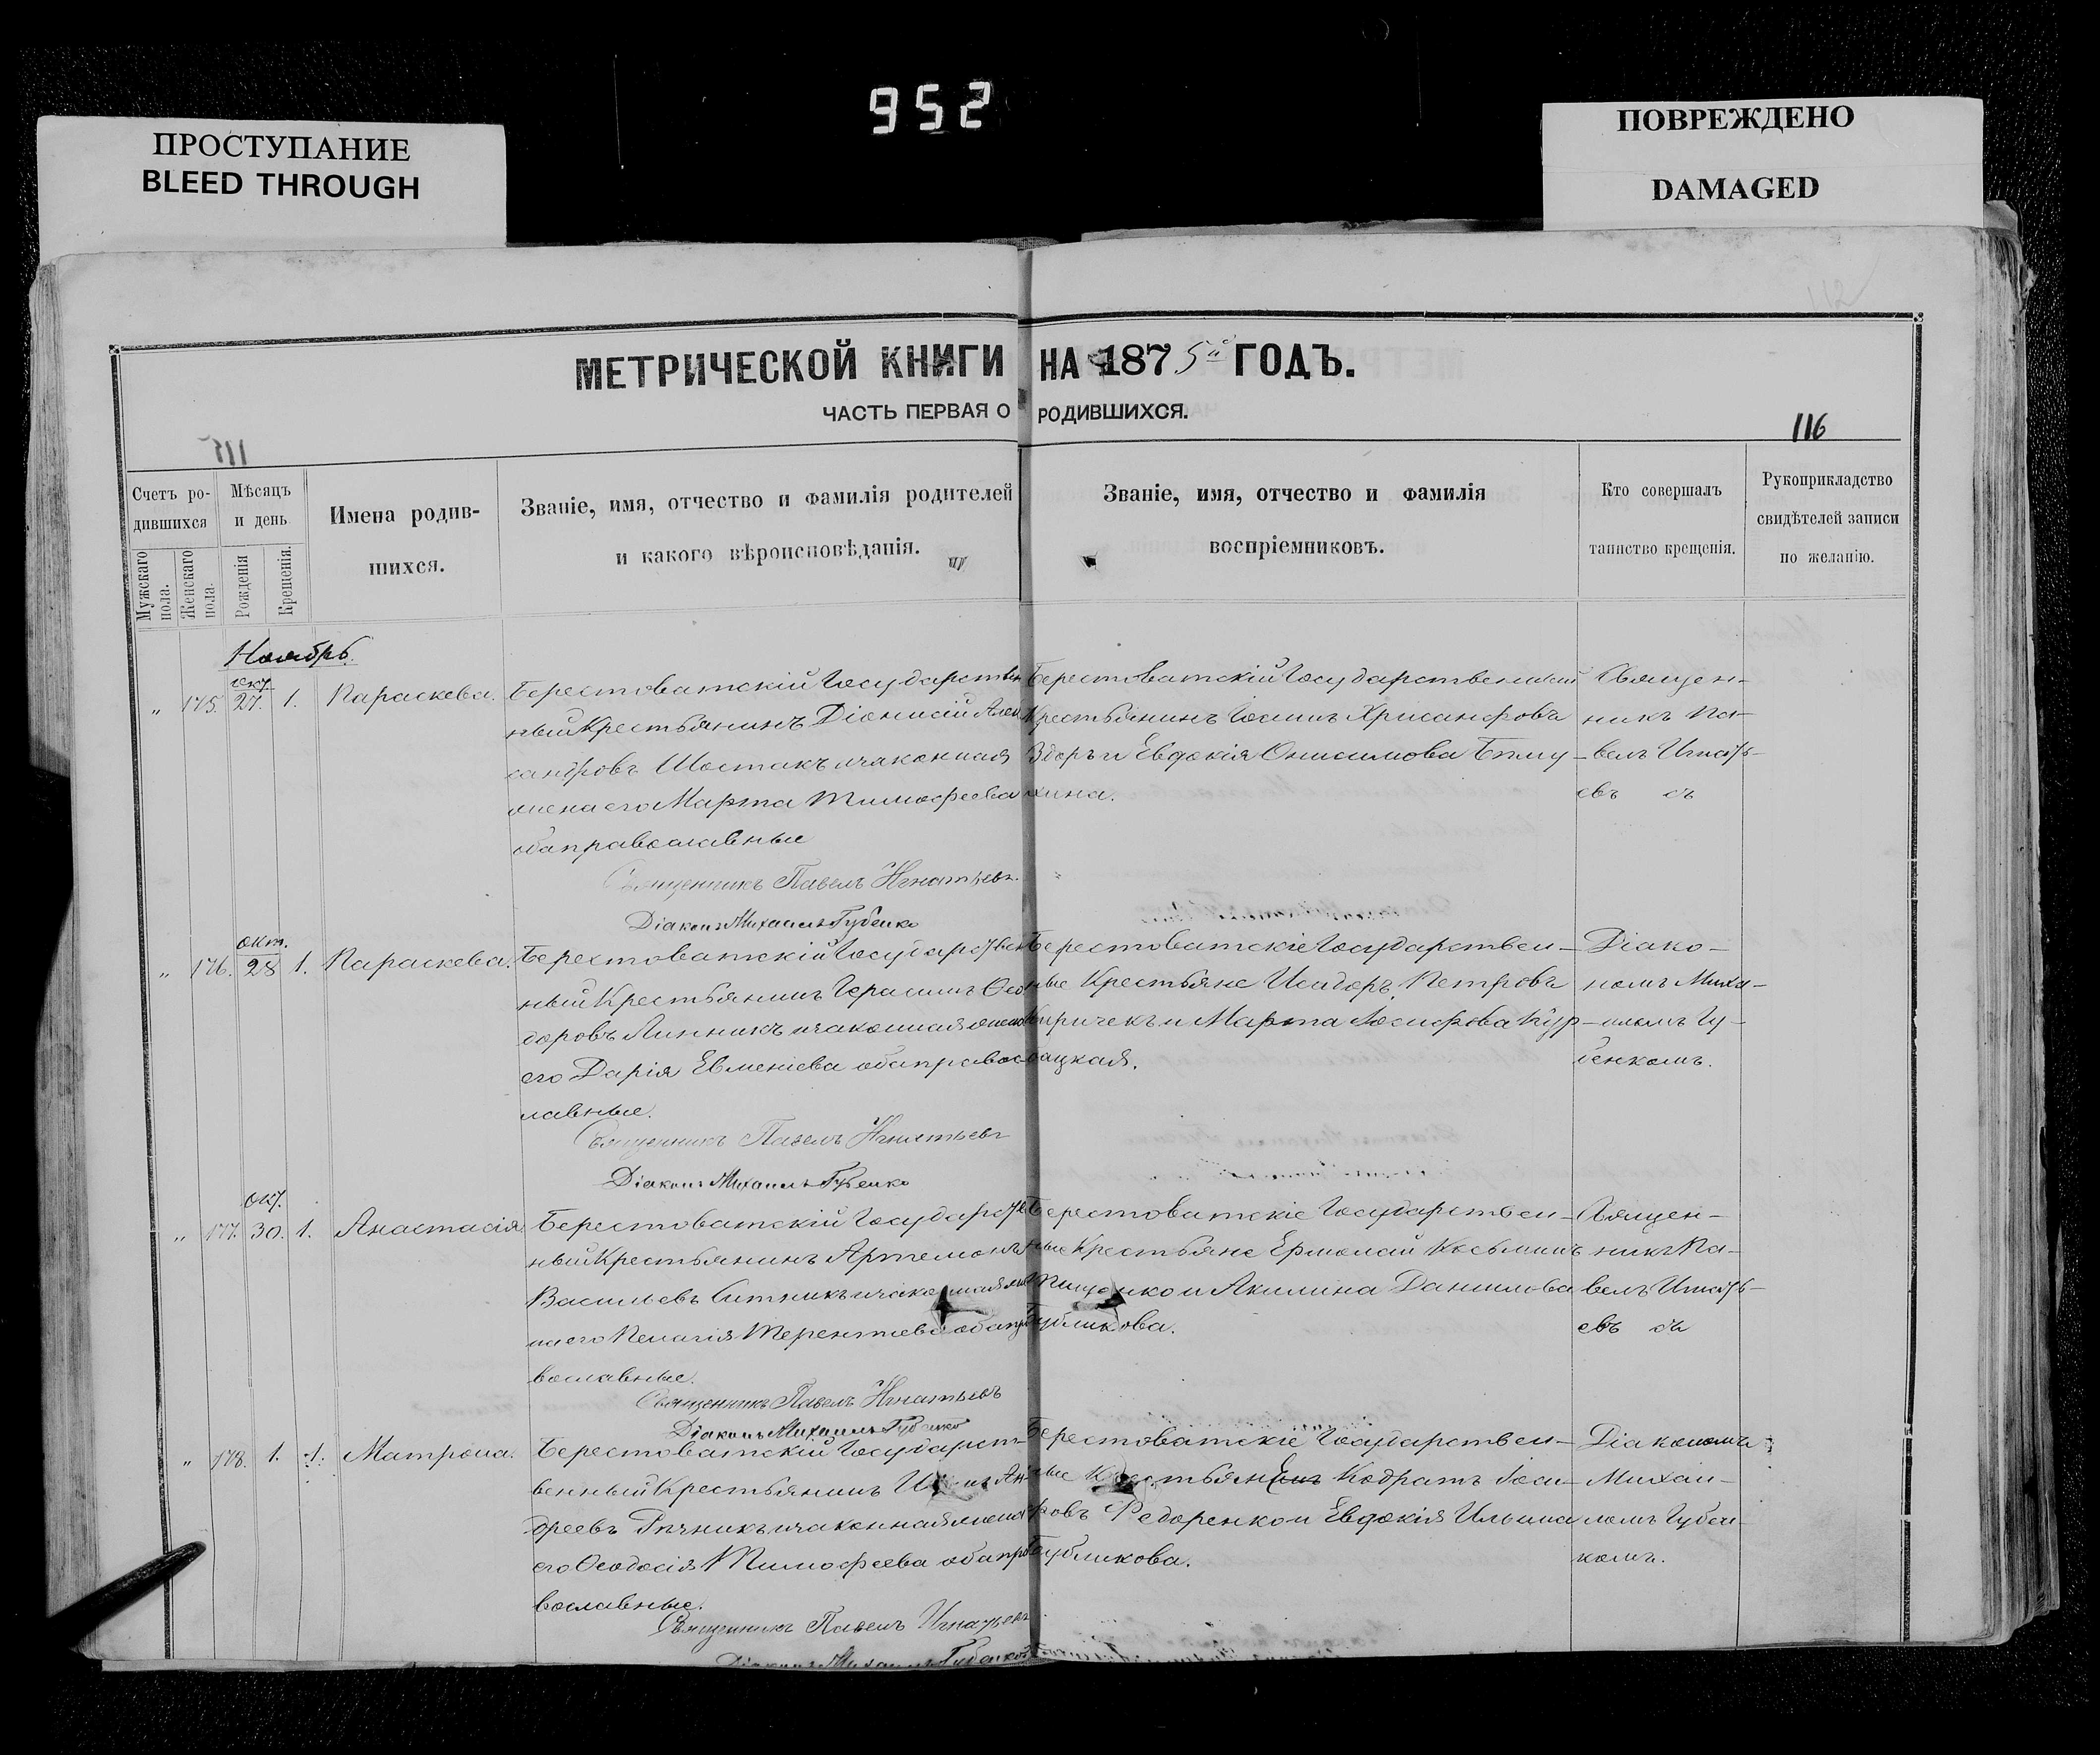 952
ПРОСТУПАНИЕ
BLEED THROUGH
ПОВРЕЖДЕНО
DAMAGED
112
МЕТРИЧЕСКОЙ КНИГИ НА 1875й ГОДЪ.
ЧАСТЬ ПЕРВАЯ О РОДИВШИХСЯ.
115
116
Счетъ ро-
дившихся
Мужскаго пола.
Женскаго пола.
Мѣсяцъ
и день
Рожденія
Крещенія.
Имена родив-
шихся.
Званіе, имя, отчество и фамилія родителей
и какого вѣроисповѣданія.
Званіе, имя, отчество и фамилія
воспріемниковъ.
Кто совершалъ
таинство крещенія.
Рукоприкладство
свидѣтелей записи
по желанію.
Ноябрь
„ 175. окт. 27. 1. Параскева.
Берестоватскій Государствен
ный Крестьянинъ Діонисій Алек
сандровъ Шостакъ и законная
жена его Марта Тимофеева
оба православные
Священникъ Павелъ Игнатьевъ.
Діаконъ Михаилъ Губенко
Берестоватскій Государственный
Крестьянинъ Іоаннъ Хрисанфовъ
и Евдокія Онисимова
Священ-
никъ Па-
велъ Игнать-
евъ съ
„ 176. окт. 28 1. Параскева.
Берестоватскій Государствен
ный Крестьянинъ Герасимъ Ѳео
доровъ Линникъ и законная жена
его Дарія Евменіева оба правос
лавные.
Священникъ Павелъ Игнатьевъ
Діаконъ Михаилъ Губенко
Берестоватскіе Государствен-
ные Крестьяне Исидоръ Петровъ
Киричекъ и Марта Іосифова Кур-
бацкая.
Діако-
номъ Миха-
иломъ Гу-
бенкомъ.
„ 177. окт. 30. 1. Анастасія
Берестоватскій Государств
ный Крестьянинъ Артемонъ
Васильевъ Ситникъ и законная же
на его Пелагія Терентіева оба пра
вославные.
Священникъ Павелъ Игнатьевъ
Діаконъ Михаилъ Губенко
Берестоватскіе Государствен-
ные Крестьяне Ермолай Косьминъ
и Акилина Данилова
Бубликова.
Священ-
никъ Па-
велъ Игнать-
евъ съ
„ 178. 1. 1. Матрона.
Берестоватскій Государст-
венный Крестьянинъ Ан
дреевъ и законная жена
его Ѳеодосія Тимофеева оба пра
вославные.
Священникъ Павелъ Игнатьевъ
Діаконъ Михаилъ Губенко
Берестоватскіе Государствен-
ные Крестьяне Кодратъ Іоси-
фовъ Федоренко и Евдокія Ильина
Бубликова.
Діакономъ
Михаи-
ломъ Губен-
комъ.